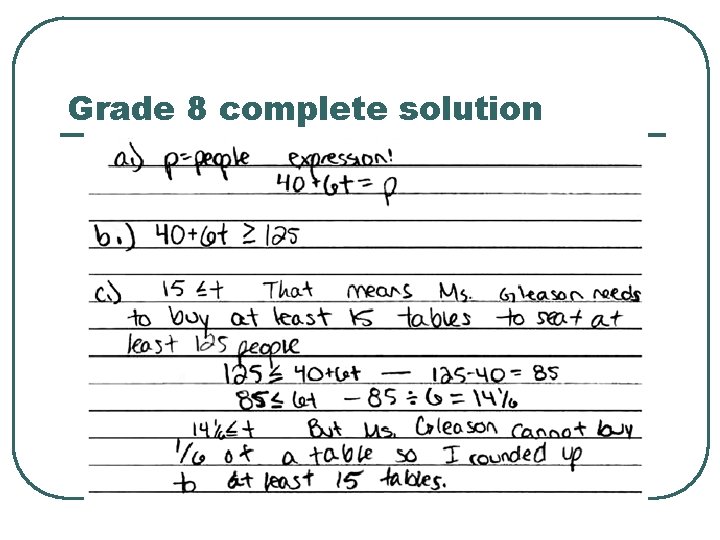 Grade 8 complete solution
a.) p=people expression!
40+6t= p
b.) 40+6t ≥ 125
c.) 15 ≤ t That means Ms. Gleason needs
to buy at least 15 tables to seat at
least 125 people
125 ≤ 40+6t — 125-40 = 85
85 ≤ 6t - 85 ÷ 6 = 14 1/6
14 1/6 ≤ t But Ms. Gleason cannot buy
1/6 of a table so I rounded up
to at least 15 tables.